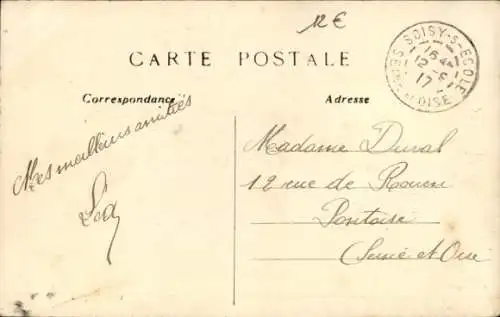 12€
CARTE POSTALE
Correspondance
Adresse
SOISY-S-ECOLE
16 45
12 -6
17
SEINE-ET-OISE
Mes meilleures amitiés
Madame Duval
12 rue de Rouen
Pontoise
(Seine et Oise